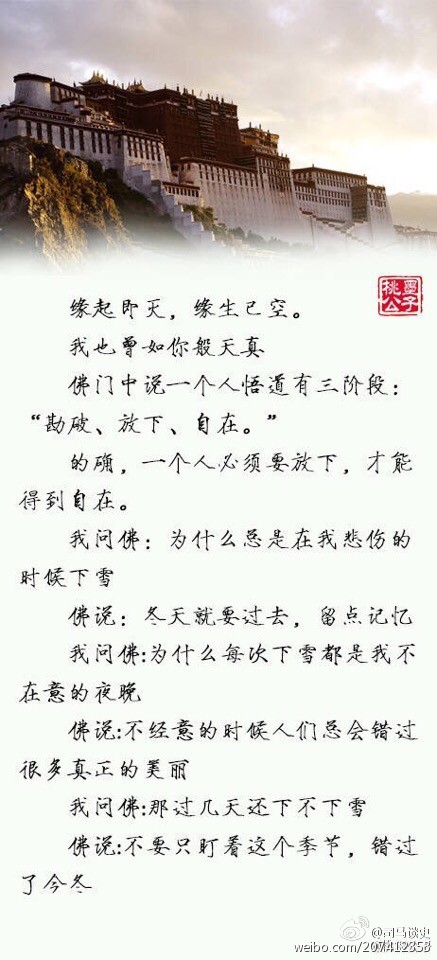 墨子
桃公
缘起即天，缘生已空。
我也曾如你般天真
佛门中说一个人悟道有三阶段：
“勘破、放下、自在。”
的确，一个人必须要放下，才能
得到自在。
我问佛：为什么总是在我悲伤的
时候下雪
佛说：冬天就要过去，留点记忆
我问佛:为什么每次下雪都是我不
在意的夜晚
佛说:不经意的时候人们总会错过
很多真正的美丽
我问佛:那过几天还下不下雪
佛说:不要只盯着这个季节，错过
了今冬
@司马谈史
weibo.com/207412358